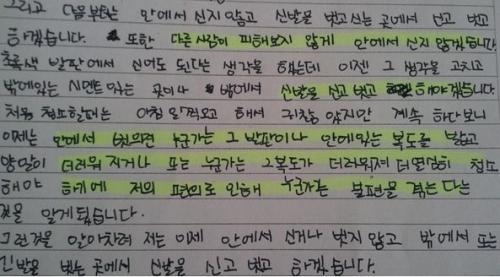 그리고 다음부터는 안에서 신지 않고 신발을 벗고 신는 곳에서 신고 벗고
하겠습니다. 또한 다른사람이 피해보지 않게 안에서 신지 않겠습니다
초록색 발판에서 신어도 된다는 생각을 했는데 이젠 그 생각을 고치고
밖에있는 시멘트 있는 곳이나 밖에서 신발을 신고 벗고 해야겠습니다.
처음 청소할때는 아침 일찍오고 해서 귀찮 않지만 계속 하다보니
이제는 안에서 벗으면 누군가는 그 발판이나 안에있는 복도를 밟고
양말이 더러워 지거나 또는 누군가는 그복도가 더러워져 더열심히 청소
해야 하기에 저의 편의로 인해 누군가는 불편을 겪는 다는
것을 알게됬습니다.
그런것을 안아차려 저는 이제 안에서 신거나 벗지 않고 밖에서 또는
신발을 벗는 곳에서 신발을 신고 벗고 하겠습니다.